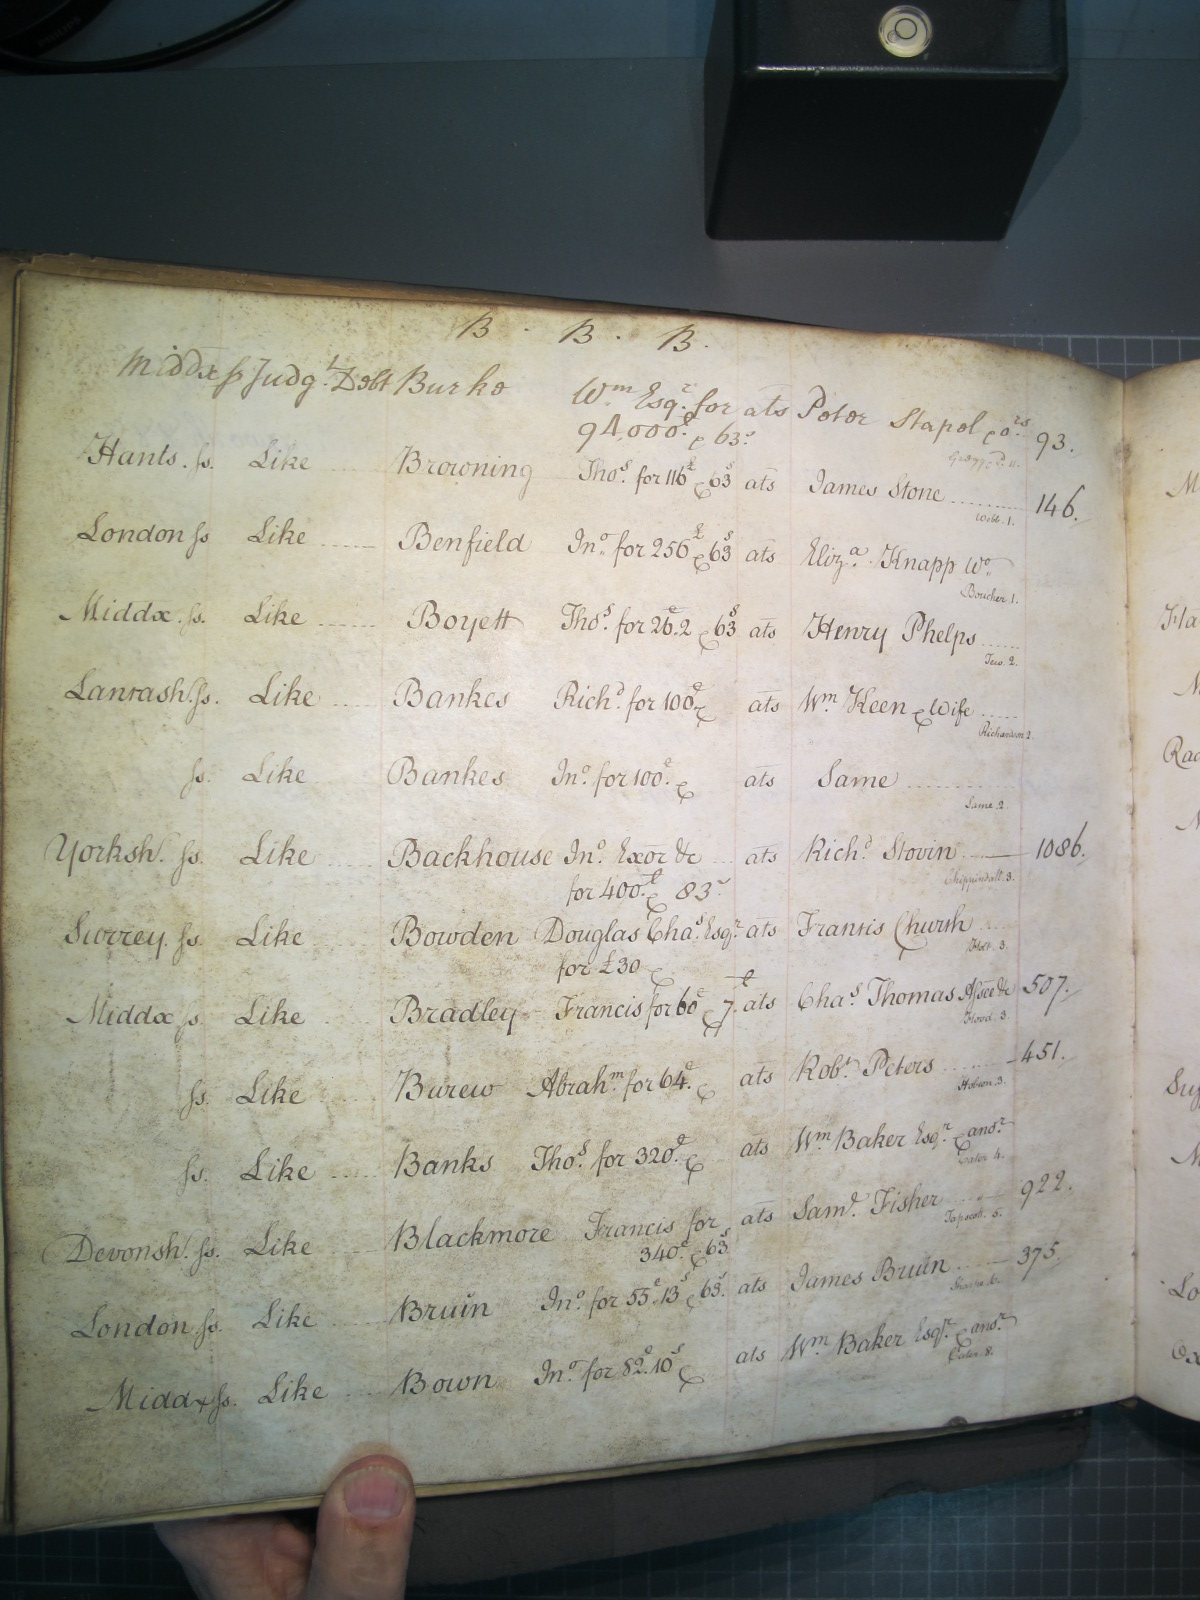 B . B . B.
Middx ss Judgt. Debt Burke Wm. Esqr. for ats Peter Stapel & ors. 93.
94,000£ & 63s.
Hants. ss. Like Browning Thos. for 116£ & 63s ats James Stone 146.
Webb. 1.
London ss Like Benfield Jno. for 256£ & 63s ats Eliza. Knapp Wo.
Boucher. 1.
Middx. ss. Like Boyett Thos. for 26.2 & 63s ats Henry Phelps
2.
Lancash. ss. Like Bankes Richd. for 100£ & ats Wm. Keen & Wife
Richardson 2.
ss. Like Bankes Jno. for 100£. & ats Same
Same. 2.
Yorksh. ss. Like Backhouse Jno. Exor &c ats Richd. Stovin 1086.
for 400£. & 83s Shippindall. 3.
Surrey. ss. Like Bowden Douglas Chas. Esqr. ats Francis Church
for £30 & 3.
Middx ss Like Bradley Francis for 60£ & 7£. ats Chas. Thomas Assee &c 507.
Flood. 3.
ss. Like Burew Abrahm. for 64£. & ats Robt. Peters 451.
Hobson. 3.
ss. Like Banks Thos. for 320£. & ats Wm Baker Esqr. & anor.
Eater 4.
Devonsh. ss. Like Blackmore Francis for ats Saml. Fisher 922.
340£. & 63s Tapscott. 5.
London ss. Like Bruin Jno. for 55£.13s & 63s. ats James Bruin 375.
Middx ss. Like Bown Jno. for 82£.10s & ats Wm. Baker Esqr. & anor.
Eater. 8.